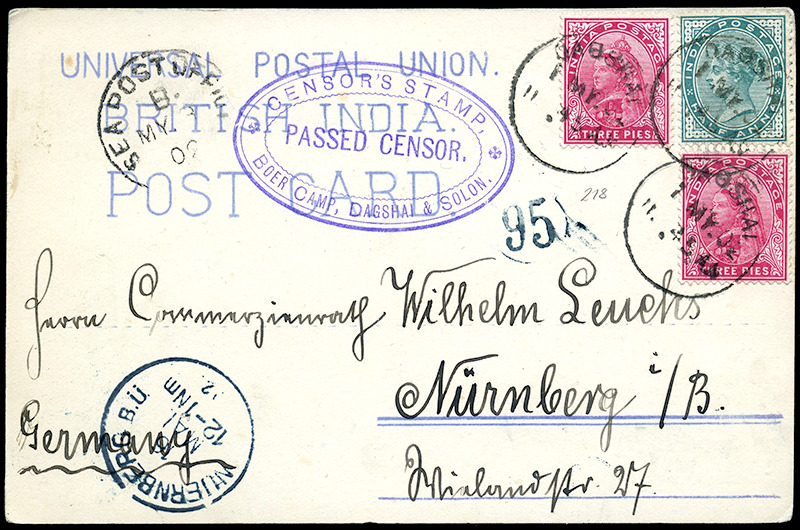 UNIVERSAL POSTAL UNION.
BRITISH INDIA.
POST CARD.
SEA POST OFFICE
B.
MY
02
CENSOR'S STAMP,
PASSED CENSOR.
BOER CAMP, DAGSHAI & SOLON.
INDIA POSTAGE
THREE PIES
INDIA POSTAGE
HALF ANNA
INDIA POSTAGE
THREE PIES
DAGSHAI
MY. 02
DAGSHAI
7 MY. 02
95
218
Herrn Commerzienrath Wilhelm Leuchs
Nürnberg i/B.
Germany
Wielandstr 27.
NUERNBERG B.Ü.
MAI
12-1 Nm